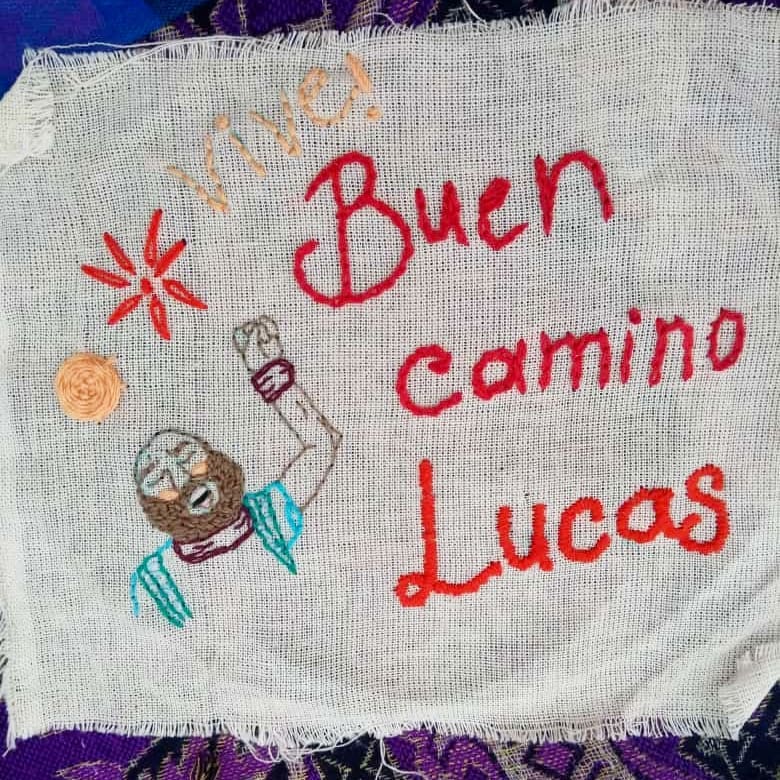 vive!
Buen
camino
Lucas